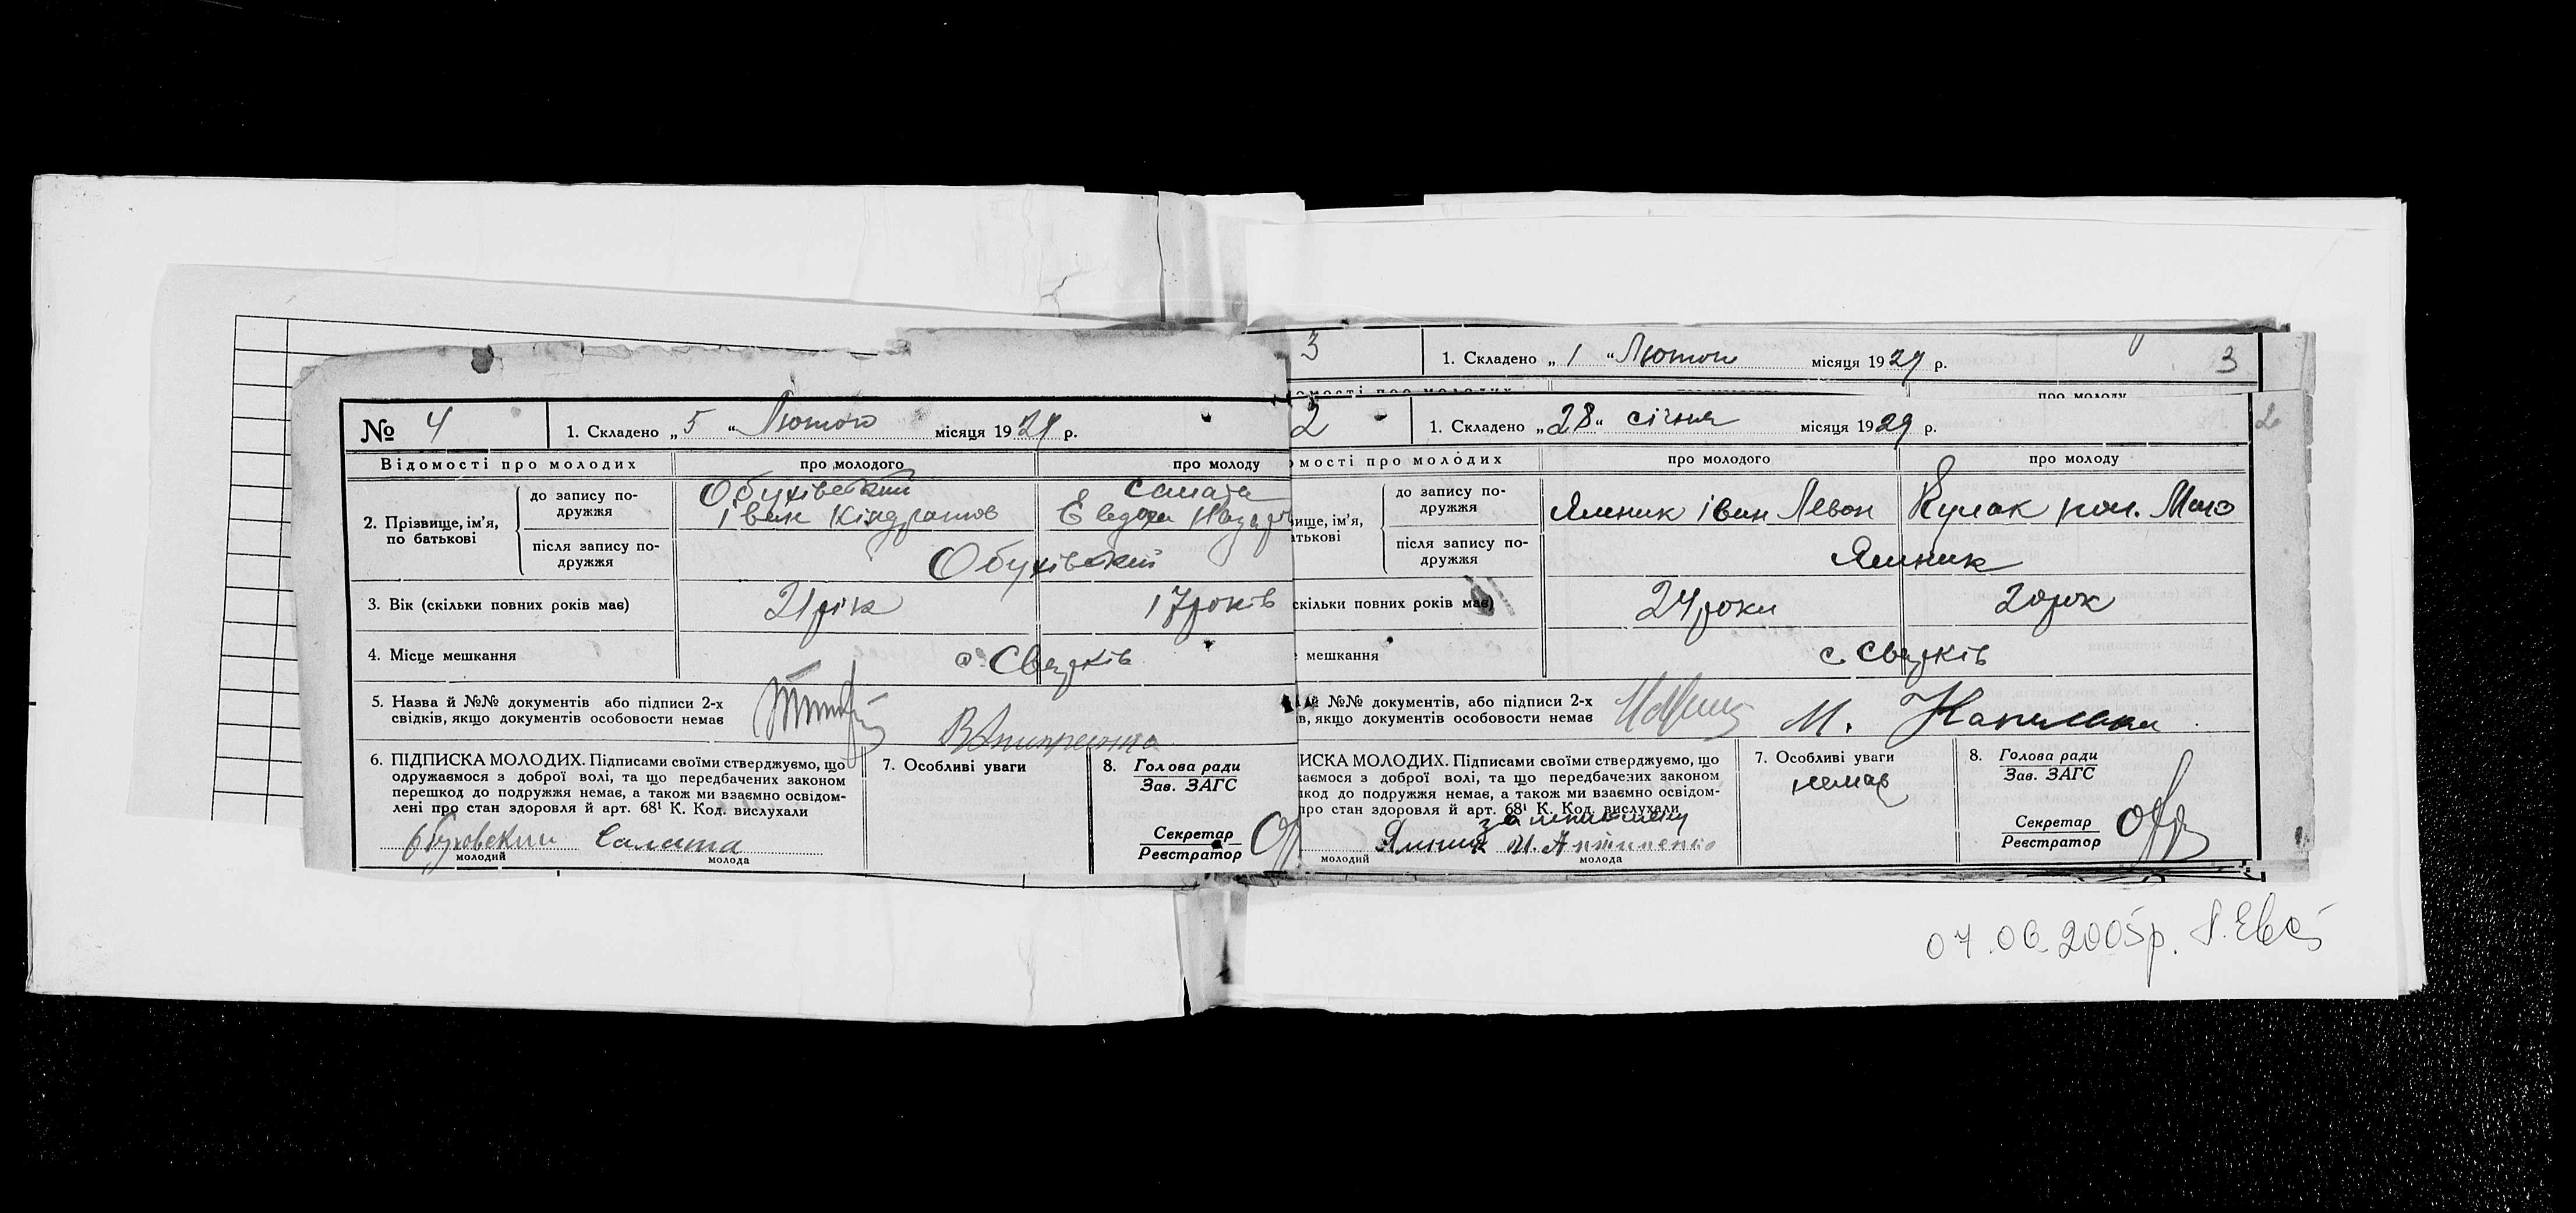 № 4
1. Складено „ 5 “ Лютого місяця 1929 р.
Відомості про молодих
про молодого
про молоду
2. Прізвище, ім’я, по батькові
до запису по-
дружжя
Обухівський
Іван Кіндратов
Салата
після запису по-
дружжя
Обухівський
3. Вік (скільки повних років має)
21 рік
17 років
4. Місце мешкання
с. Свидків
5. Назва й №№ документів або підписи 2-х
свідків, якщо документів особовости немає
6. ПІДПИСКА МОЛОДИХ. Підписами своїми стверджуємо, що
одружаємося з доброї волі, та що передбачених законом
перешкод до подружжя немає, а також ми взаємно освідом-
лені про стан здоровля й арт. 68¹ К. Код. вислухали
Обуховский Салата
молодий
молода
7. Особливі уваги
8. Голова ради
Зав. ЗАГС
Секретар
Реєстратор
3
1. Складено „ 1 “ Лютого місяця 1929 р.
3
про молоду
2
1. Складено „ 28 “ січня місяця 1929 р.
2
омості про молодих
про молодого
про молоду
вище, ім’я,
атькові
до запису по-
дружжя
Ямник Іван Левон
Кулак
після запису по-
дружжя
Ямник
скільки повних років має)
24 роки
20 рок
мешкання
с. Свидків
й №№ документів, або підписи 2-х
в, якщо документів особовости немає
М.
ИСКА МОЛОДИХ. Підписами своїми стверджуємо, що
каємося з доброї волі, та що передбачених законом
код до подружжя немає, а також ми взаємно освідом-
про стан здоровля й арт. 68¹ К. Код. вислухали
Ямник
молодий
молода
7. Особливі уваги
немає
8. Голова ради
Зав. ЗАГС
Секретар
Реєстратор
07.06.2005р.